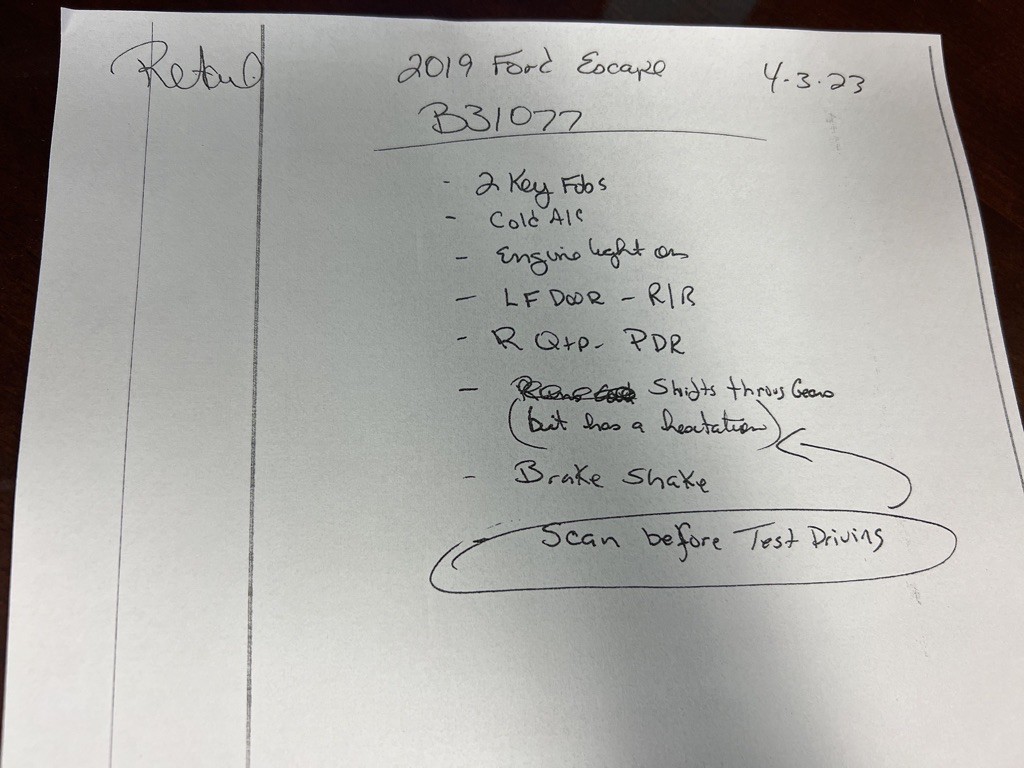 Retail
2019 Ford Escape
4-3-23
B31077
- 2 Key Fobs
- Cold A/C
- Engine light on
- LF DOOR - R/B
- R Qtp - PDR
- Shifts throug Gears
(but has a hesitation)
- Brake Shake
- Scan before Test Driving